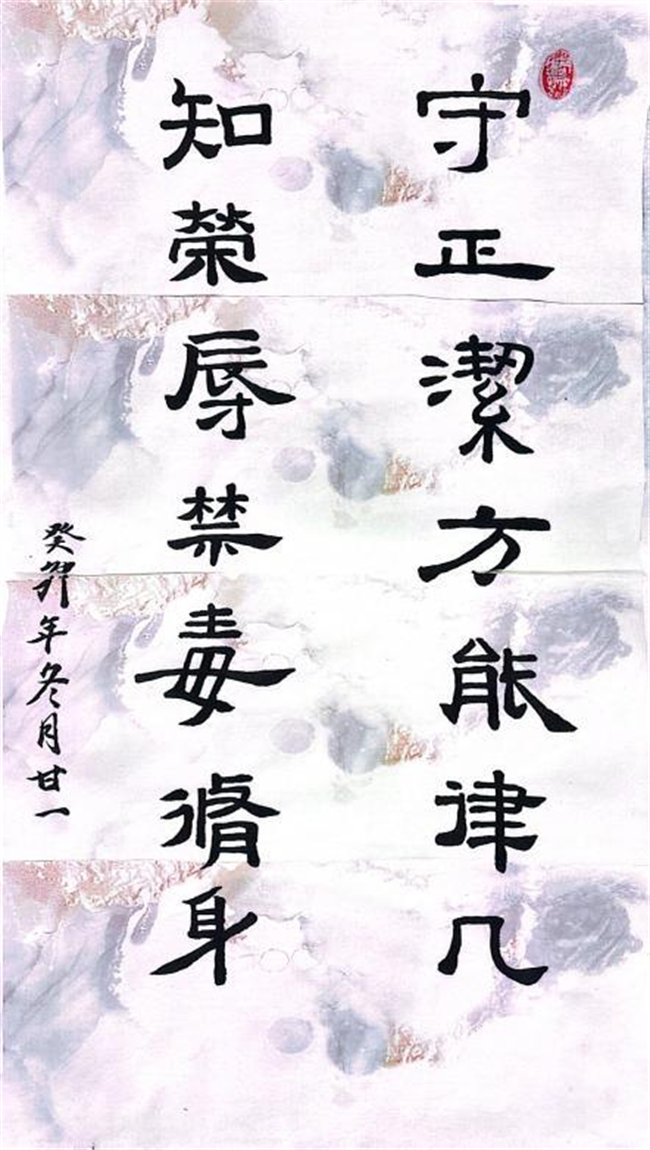 守正潔方能律几
知榮辱禁毒脩身
癸卯年冬月廿一